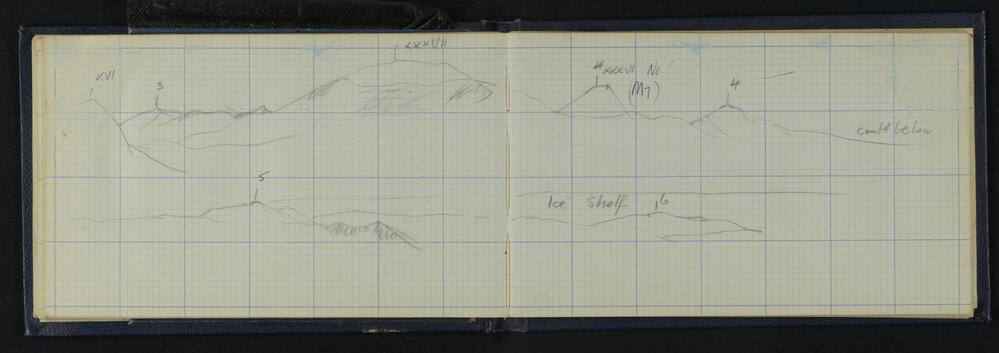 XVI
3
LXXXVII
4
XXXVI No!
(M7)
4
contd below
5
Ice Shelf
6